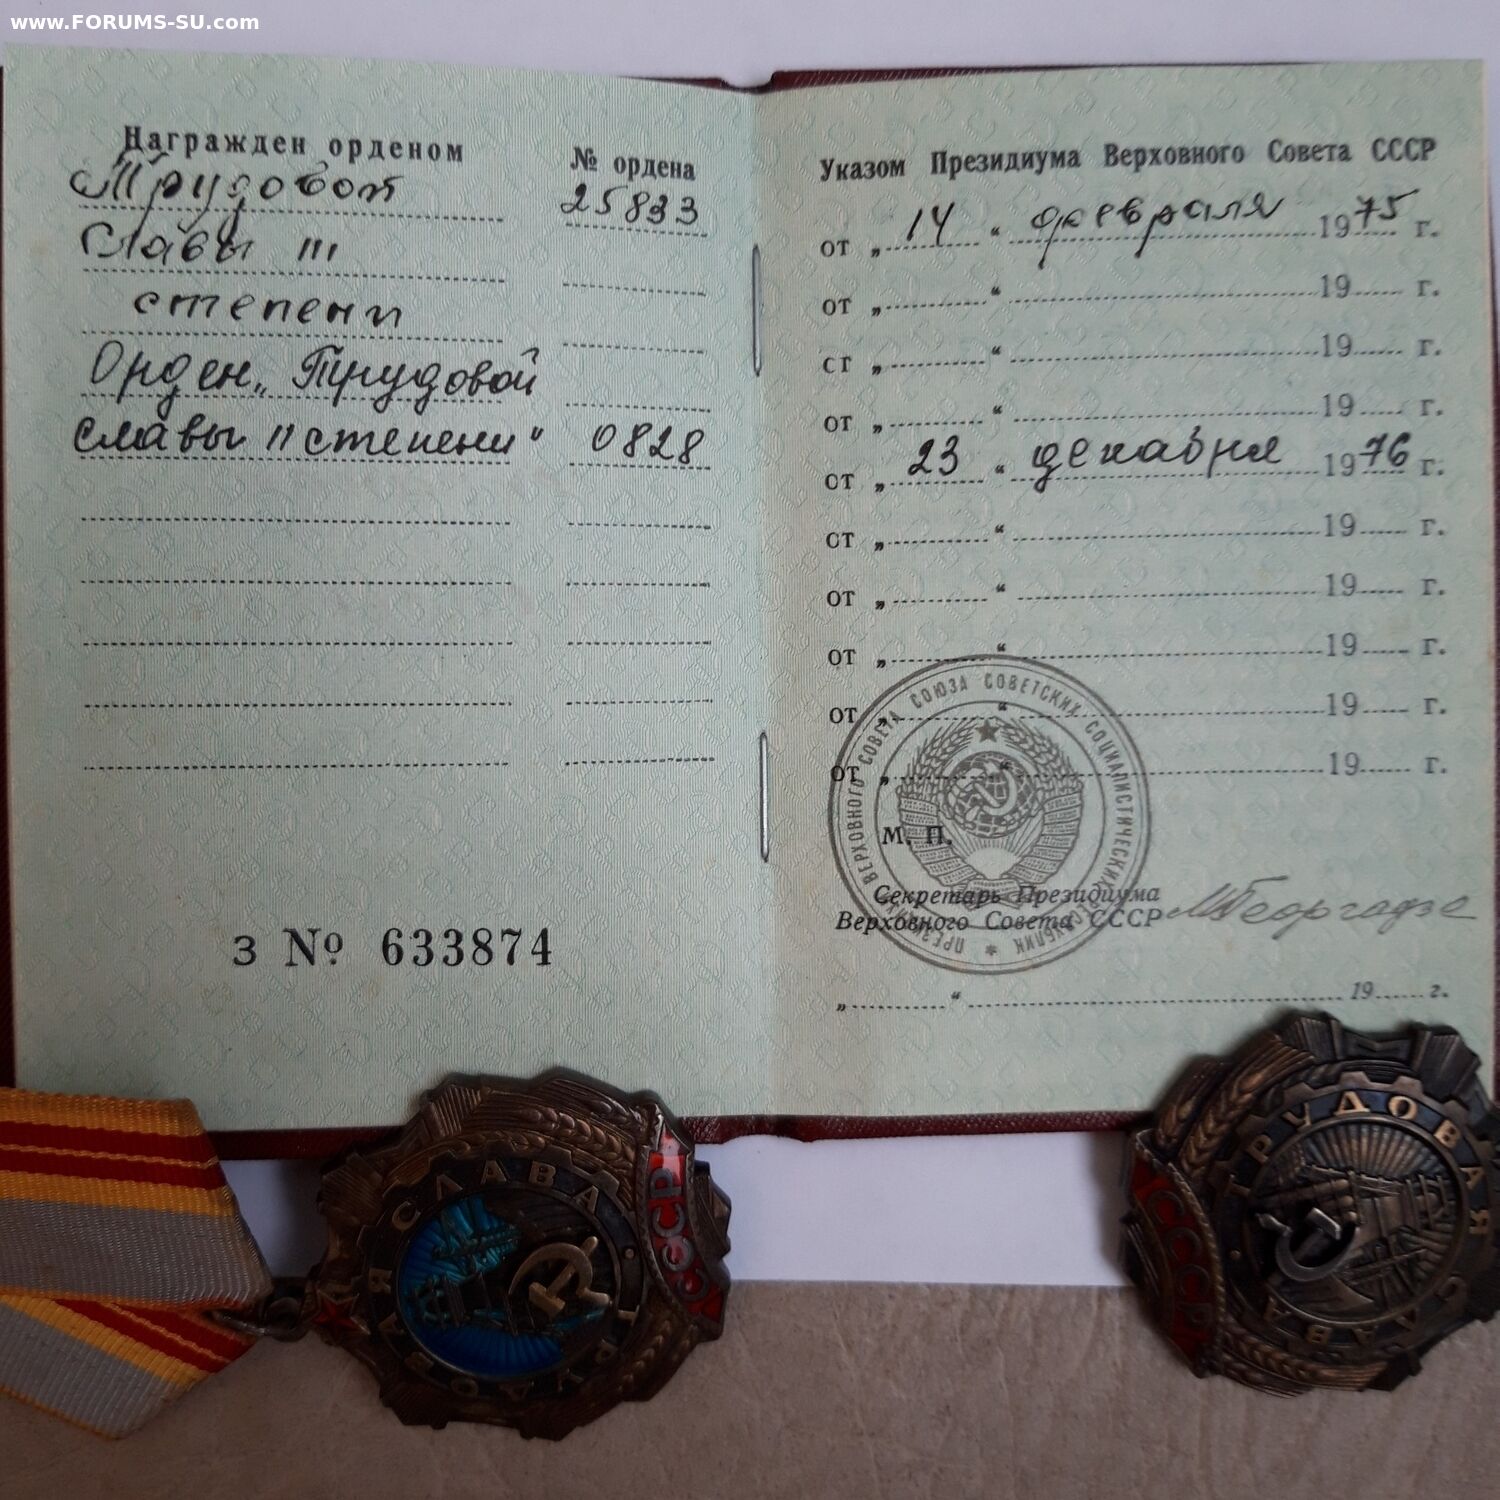 www.FORUMS-SU.com
Награжден орденом
№ ордена
Трудовой
25833
Славы III
степени
Орден „Трудовой
славы II степени“
0828
З № 633874
Указом Президиума Верховного Совета СССР
от „ 14 “ февраля 1975 г.
от „ “ 19 г.
ст „ “ 19 г.
от „ “ 19 г.
от „ 23 “ декабря 1976 г.
ст „ “ 19 г.
от „ “ 19 г.
от „ “ 19 г.
от „ “ 19 г.
от „ “ 19 г.
М. П.
Секретарь Президиума
Верховного Совета СССР М Георгадзе
„ “ 19 г.
ВЕРХОВНОГО СОВЕТА СОЮЗА СОВЕТСКИХ СОЦИАЛИСТИЧЕСКИХ
ТРУДОВАЯ СЛАВА
СССР
ТРУДОВАЯ СЛАВА
СССР